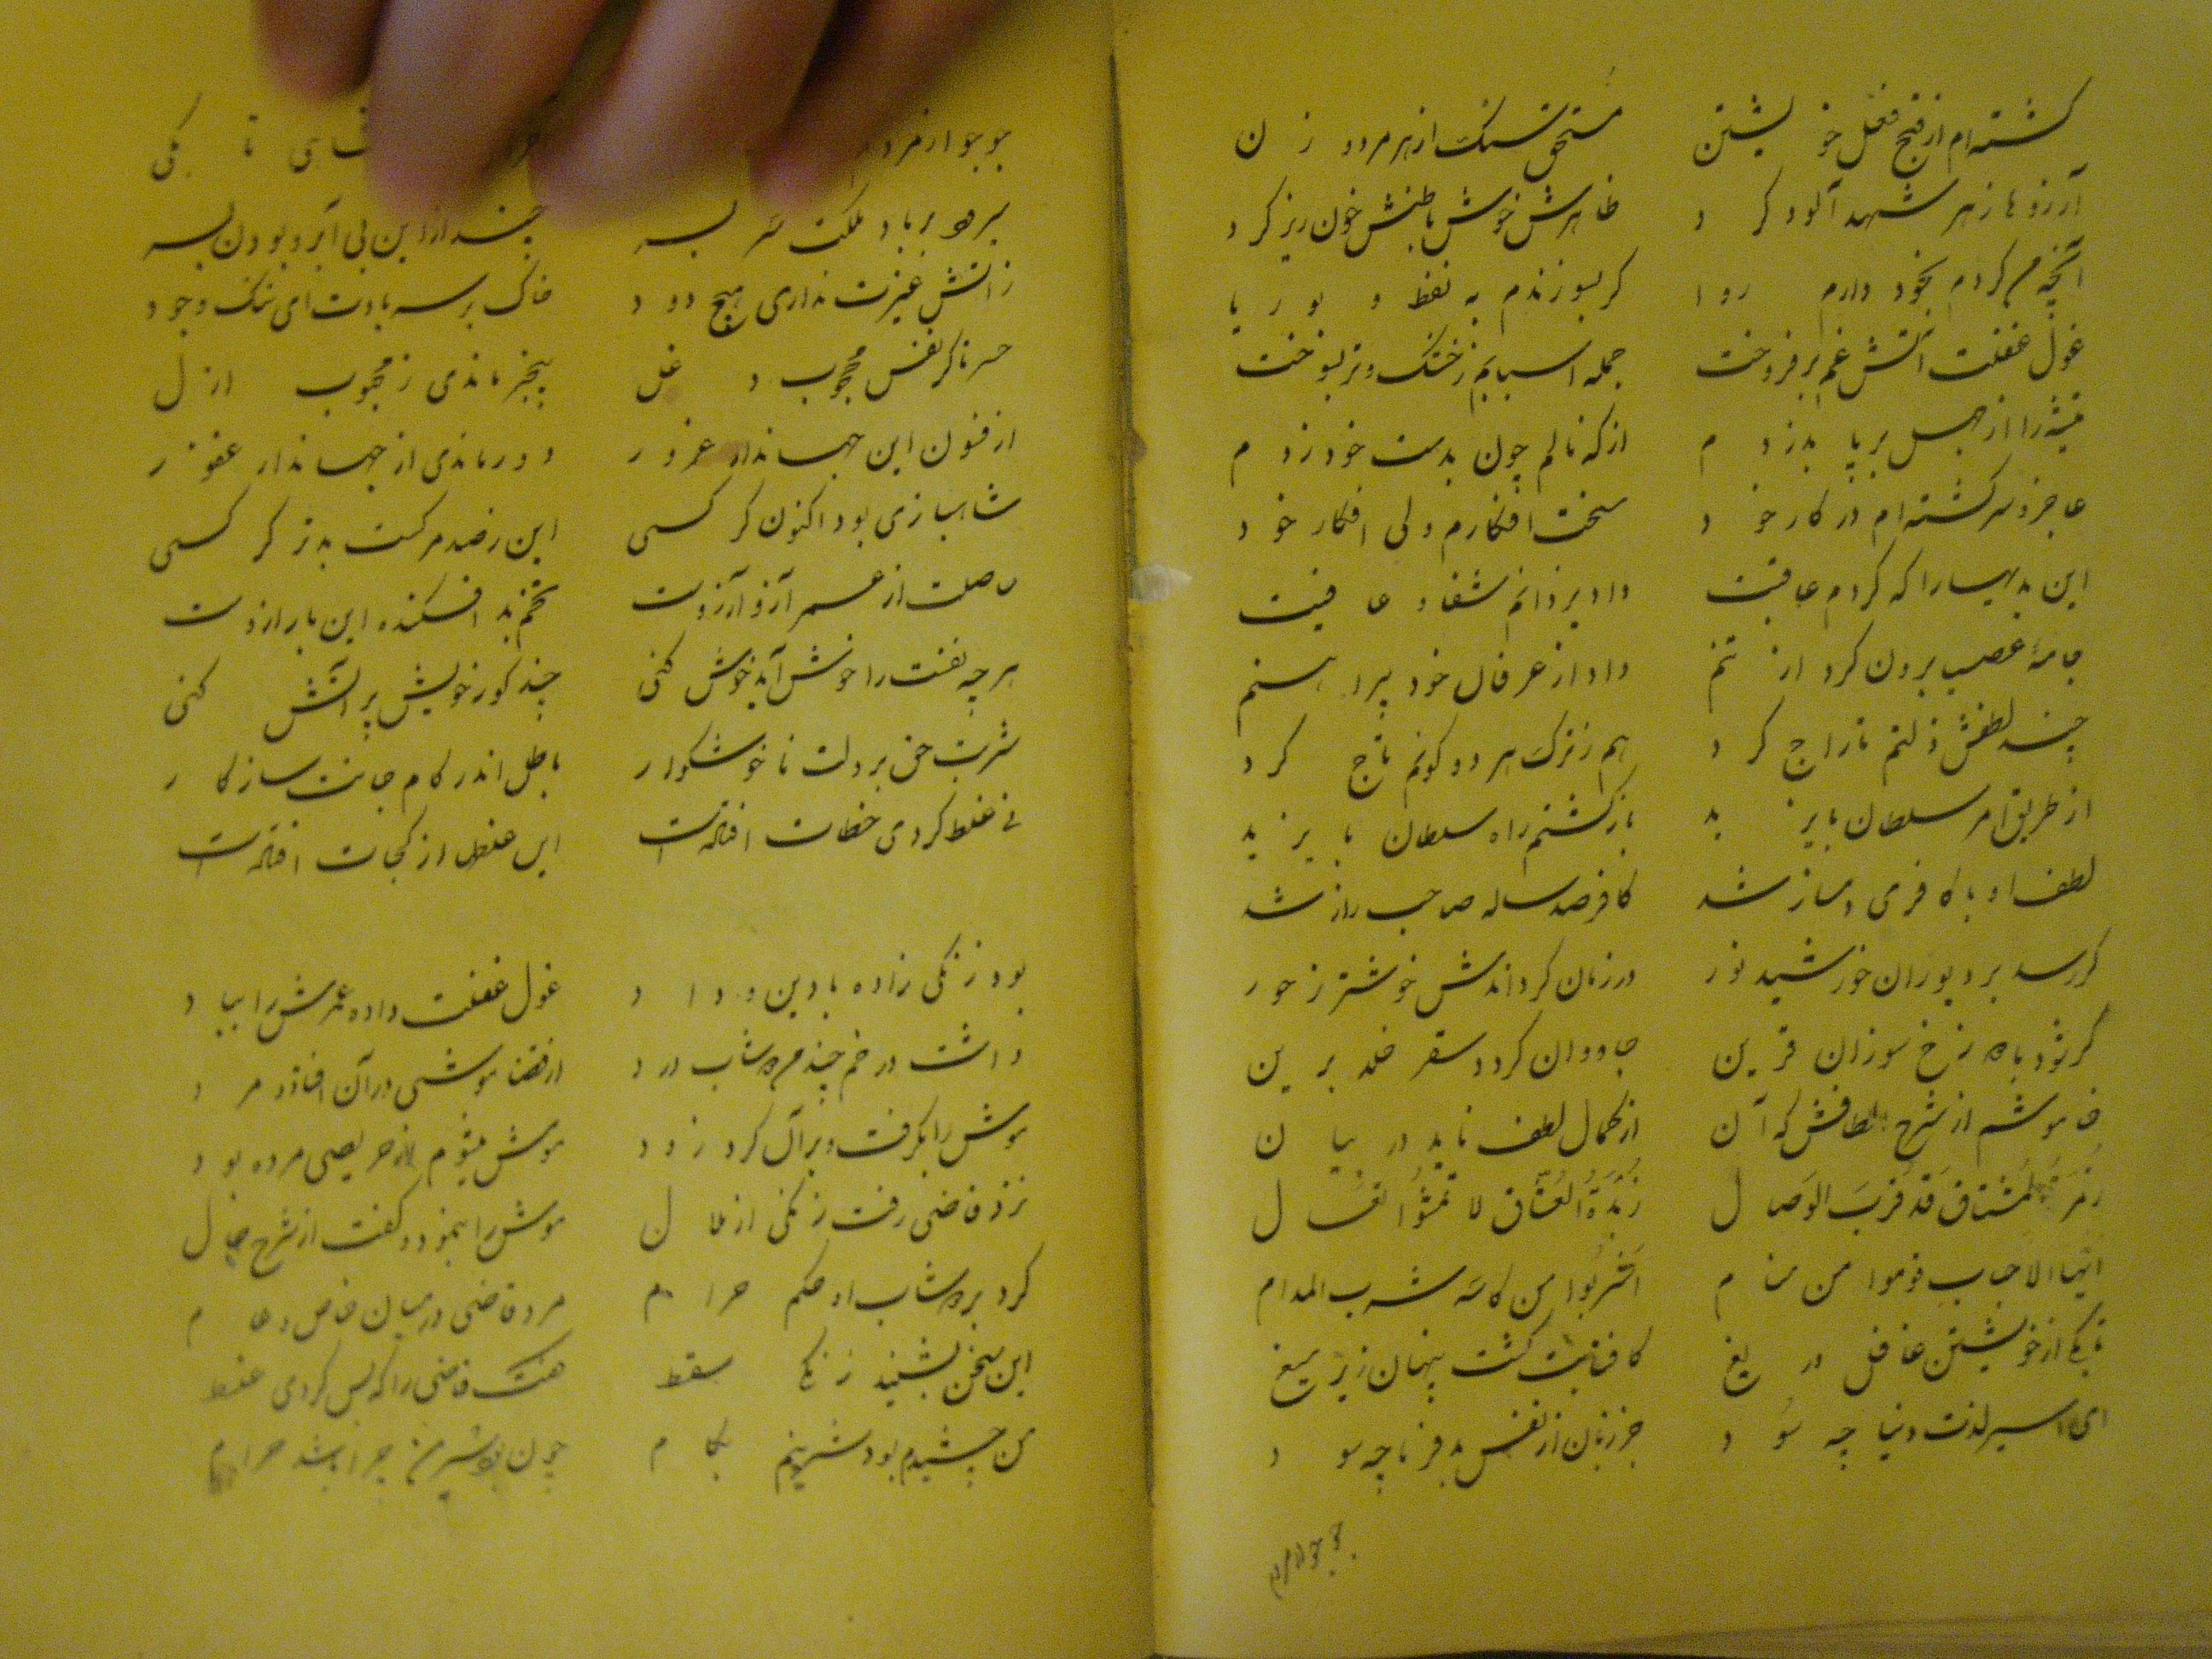 کشته‌ام از قبح فعل خویشتن مستحق سنگ از هر مرد و زن
آرزوها زهر شهد آلود کرد ظاهرش خوش باطنش خون ریز کرد
آنچه من کردم بخود دارم روا گر بسوزندم به نفط و بوریا
غول غفلت آتش غم برفروخت جمله اسبابم ز خشک و تر بسوخت
تیشه را از جهل بر پا بر زدم از که نالم چون بدست خود زدم
عاجز و سرگشته‌ام در کار خود سخت افکارم ولی افکار خود
این بدیها را که کردم عاقبت داد یزدانم شفا و عافیت
جامهٔ عصیب برون کرد از تنم داد از عرفان خود پیراهنم
چند لطفش ذلتم تاراج کرد هم ز ترک هر دو کونم تاج کرد
از طریق امر سلطان بایزید بازگشتم راه سلطان بایزید
لطف او با کافری دمساز شد کافر صد ساله صاحب راز شد
گر رسد بر دیو از آن خورشید نور در زمان گرداندش خوشتر ز حور
گر شود با دوزخ سوزان قرین جاودان گردد سقر خلد برین
خامشم از شرح الطافش که آن از کمال لطف ناید در بیان
المشتاق قد قرب الوصال زبدة العشاق لا تمشوا
ایها الاحباب قوموا من منام اشربوا من کاسه شرب المدام
تا بکی از خویشتن غافل دریغ کافتابت گشت پنهان زیر میغ
ای اسیر لذت دنیا چه سود جز زیان از نفس بدفرما چه سود
جو بجو از
سر بسر چند از این بی آبرو بودن بسر
ز آتش غیرت نداری هیچ دود خاک بر سر بادت ای ننگ وجود
محجوب دغل بیخبر ماندی ز محجوب ازل
از فنون این جهاندار غرور دور ماندی از جهاندار غفور
شاهبازی بود اکنون کرکسی این ز صد مرگت بدتر گر کسی
حاصلت از عمر آز و آرزوست تخم بد افکنده این بار ازوست
هر چه نفست را خوش آید خوش کنی چند گور خویش پر آتش کنی
شربت حق بر دلت ناخوشگوار باطل اندر کام جانت سازگار
نی غلط کردی خطات افتاده است این غلط از کجات افتاده است
بود زنگی زاده با دین و داد غول غفلت داده عمرش را بباد
داشت در خم چند من دوشاب درد از قضا موشی در آن افتاد و مرد
موش را بگرفت و بیرون کرد زود موش میشوم از حریصی مرده بود
نزد قاضی رفت زنگی از ملال موش را بنمود و گفت از شرح حال
کرد بر دوشاب او حکم حرام مرد قاضی در میان خاص و عام
این سخن بشنید زنگی سقط گفت قاضی را که بس کردی غلط
من چشیدم بود شیرینم بکام چون بود شیرین چرا باشد حرام